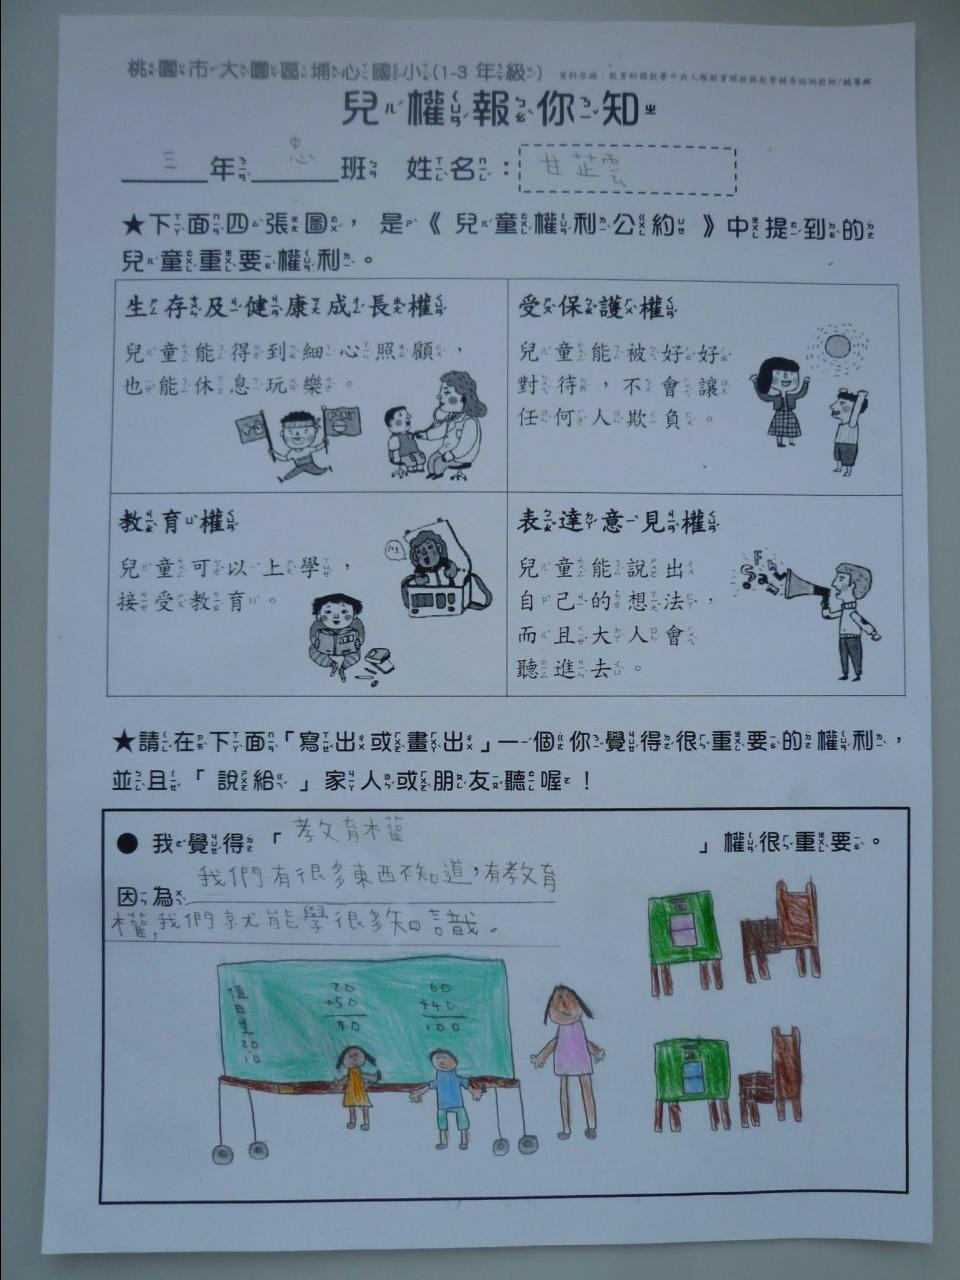 桃園市大園區埔心國小(1-3 年級)
資料來源：教育部國教署中央人權教育課程與教學輔導諮詢教師/輔導群
兒權報你知
三年忠班 姓名：甘芷雲
★下面四張圖，是《兒童權利公約》中提到的
兒童重要權利。
生存及健康成長權
兒童能得到細心照顧，
也能休息玩樂。
受保護權
兒童能被好好
對待，不會讓
任何人欺負。
教育權
兒童可以上學，
接受教育。
表達意見權
兒童能說出
自己的想法，
而且大人會
聽進去。
★請在下面「寫出或畫出」一個你覺得很重要的權利，
並且「說給」家人或朋友聽喔！
●我覺得「教育權」權很重要。
因為我們有很多東西不知道，有教育
權，我們就能學很多知識。
值日生
20
10
20
+50
70
60
+40
100